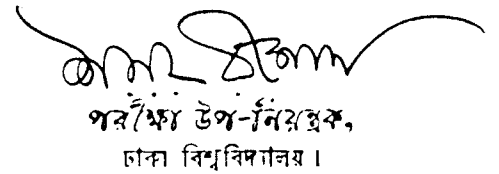 পরীক্ষা উপ-নিয়ন্ত্রক,
ঢাকা বিশ্ববিদ্যালয়।